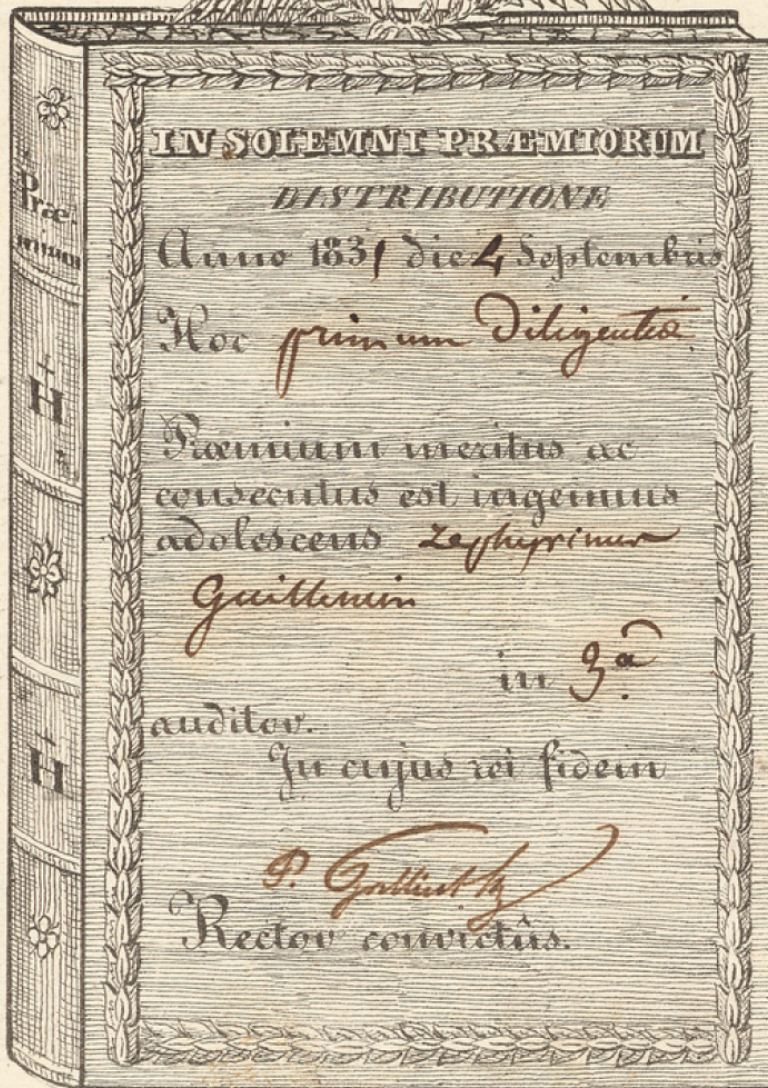 IN SOLEMNI PRÆMIORUM
DISTRIBUTIONE
Anno 1831 die 4 Septembris
Hoc primum Diligentiæ
Præmium meritus ac
consecutus est ingenuus
adolescens Zephyrinus
Guillemin
in 3ª
auditor.
In cujus rei fidem
P.
Rector convictûs.
Præ-
mium
H
H